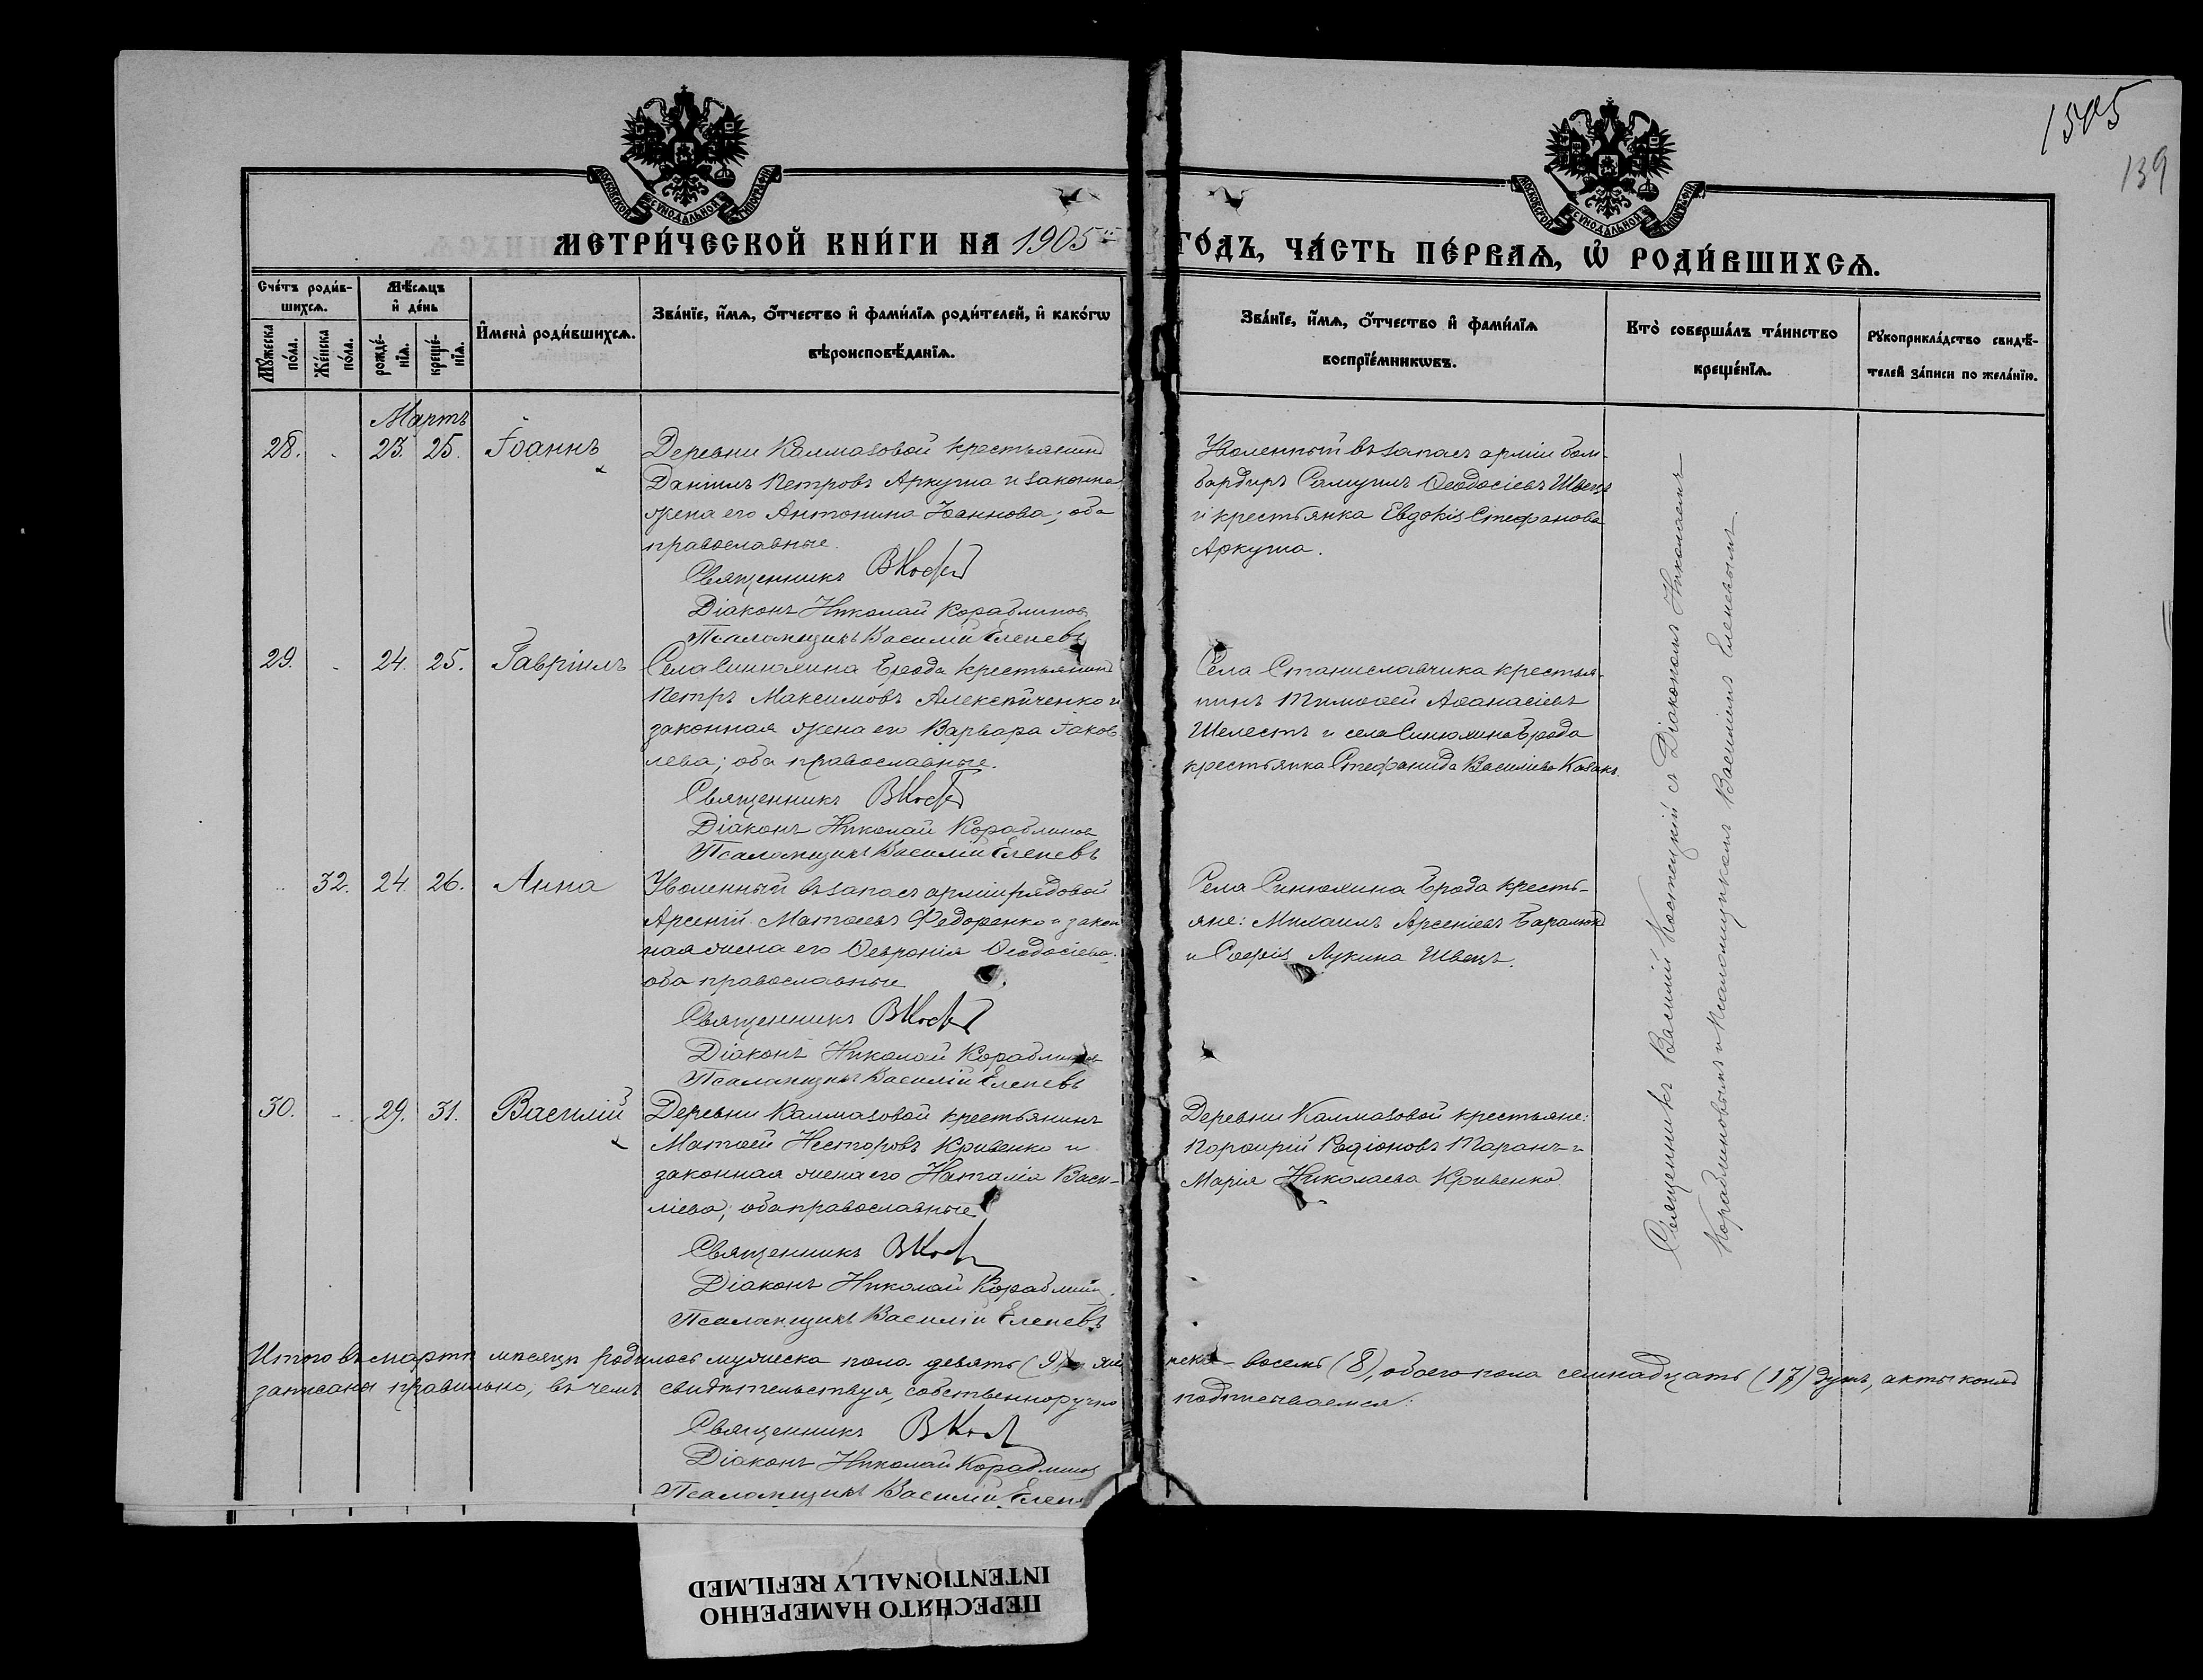 1505
139
МОСКОВСКОЙ СУНОДАЛЬНОЙ ТИПОГРАФІИ
МОСКОВСКОЙ СУНОДАЛЬНОЙ ТИПОГРАФІИ
МЕТРИ́ЧЕСКОЙ КНИ́ГИ НА 1905 ГО́ДЪ, ЧА́СТЬ ПЕ́РВАѦ, Ѡ҆ РОДИ́ВШИХСѦ.
Сче́тъ роди́в-
шихсѧ.
Мꙋ́жеска по́ла.
Же́нска по́ла.
Мѣ́сѧцъ
и҆ де́нь
рожде́-
нїѧ.
креще́-
нїѧ.
И҆мена̀ роди́вшихсѧ.
Зва́нїе, и҆́мѧ, ѻ҆́тчество и҆ фами́лїѧ роди́телей, и҆ како́гѡ
вѣроисповѣ́данїѧ.
Зва́нїе, и҆́мѧ, ѻ҆́тчество и҆ фами́лїѧ
воспрїе́мникѡвъ.
Кто̀ соверша́лъ та́инство
креще́нїѧ.
Рꙋкоприкла́дство свидѣ́-
телей за́писи по жела́нїю.
Мартъ
28. 23. 25. Іоаннъ
Деревни Калмазовой крестьянинъ
Даніилъ Петровъ Аркуша и законная
жена его Антонина Іоаннова; оба
православные.
Священникъ
Діаконъ Николай Кораблиновъ
Псаломщикъ Василій Елепевъ
Уволенный въ запасъ арміи бом-
бардиръ Самуилъ Ѳеодосіевъ Швецъ
и крестьянка Евдокія Стефанова
Аркуша.
29. 24. 25. Гавріилъ
Села Синюхина Брода крестьянинъ
Петръ Максимовъ Алексійченко и
законная жена его Варвара Іаков-
лева; оба православные.
Священникъ
Діаконъ Николай Кораблиновъ
Псаломщикъ Василій Елепевъ
Села Станиславчика крестья-
нинъ Тимоѳей Аѳанасіевъ
Шелестъ и села Синюхина Брода
крестьянка Стефанида Василіева Козакъ.
32. 24. 26. Анна
Уволенный въ запасъ арміи рядовой
Арсеній Матѳеевъ Федоренко и закон
ная жена его Ѳевронія Ѳеодосіева;
оба православные
Священникъ
Діаконъ Николай Кораблиновъ
Псаломщикъ Василій Елепевъ
Села Синюхина Брода кресть-
яне: Михаилъ Арсеніевъ
и Софія Лукина Швецъ.
30. 29. 31. Василій
Деревни Калмазовой крестьянинъ
Матѳей Несторовъ Кривенко и
законная жена его Наталія Васи-
ліева; оба православные
Священникъ
Діаконъ Николай Кораблиновъ
Псаломщикъ Василій Елепевъ
Деревни Калмазовой крестьяне:
Порфирій Родіоновъ Таранъ и
Марія Николаева Кривенко
Священникъ Василій Костецкій съ Діакономъ Николаемъ
Кораблиновымъ и Псаломщикомъ Василіемъ Елепевымъ.
Итого въ мартѣ мѣсяцѣ родилось мужеска пола девять (9), женска - восемь (8), обоего пола семнадцать (17) душъ, акты коихъ
записаны правильно, въ чемъ свидѣтельствуя, собственноручно подписываемся:
Священникъ
Діаконъ Николай Кораблиновъ
Псаломщикъ Василій Елепевъ
ПЕРЕСНЯТО НАМЕРЕННО
INTENTIONALLY REFILMED